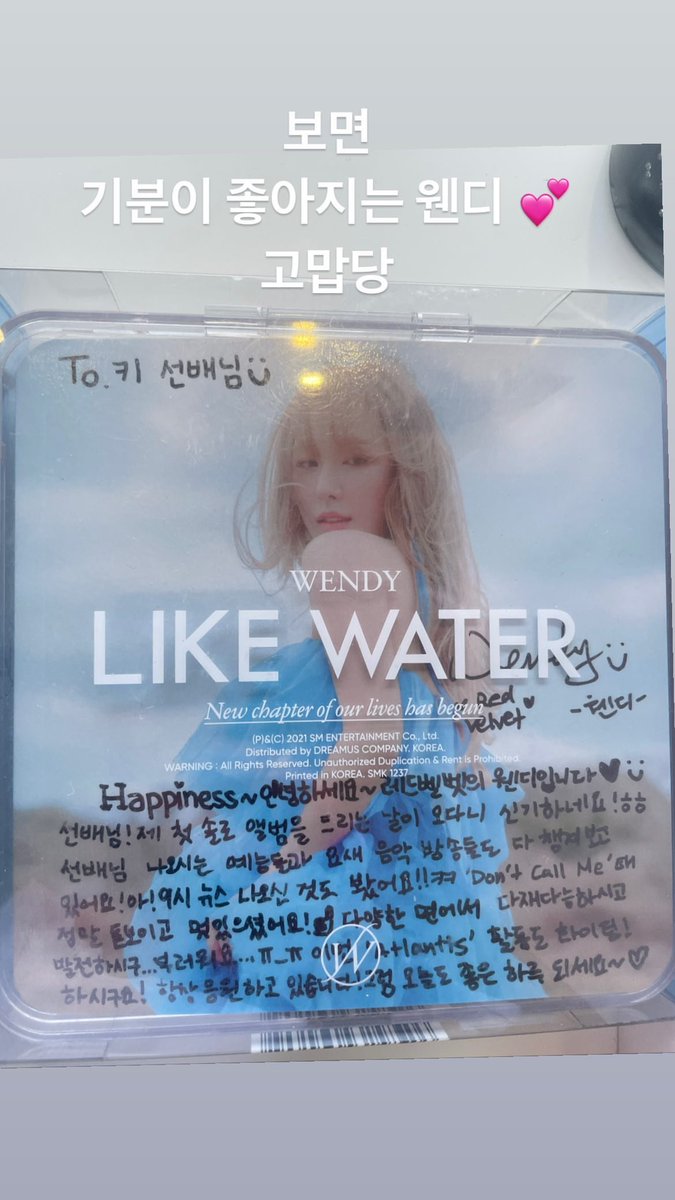 보면
기분이 좋아지는 웬디 💕
고맙당
To. 키 선배님
WENDY
LIKE WATER
Wendy
New chapter of our lives has begun
Red Velvet
-웬디-
(P)&(C) 2021 SM ENTERTAINMENT Co., Ltd.
Distributed by DREAMUS COMPANY. KOREA.
WARNING : All Rights Reserved. Unauthorized Duplication & Rent is Prohibited.
Printed in KOREA. SMK 1237
Happiness~안녕하세요~레드벨벳의 웬디입니다♥
선배님! 제 첫 솔로 앨범을 드리는 날이 오다니 신기하네요!ㅎㅎ
선배님 나오시는 예능들과 요새 음악 방송들도 다 챙겨 보고
있어요! 아! 9시 뉴스 나오신 것도 봤어요!! 'Don't Call Me' 때
정말 돋보이고 멋있으셨어요! 다양한 면에서 다재다능하시고
발전하시구...부러워요...ㅠ_ㅠ 'Atlantis' 활동도 화이팅!
하시구요! 항상 응원하고 있습니다! 그럼 오늘도 좋은 하루 되세요~♡
W